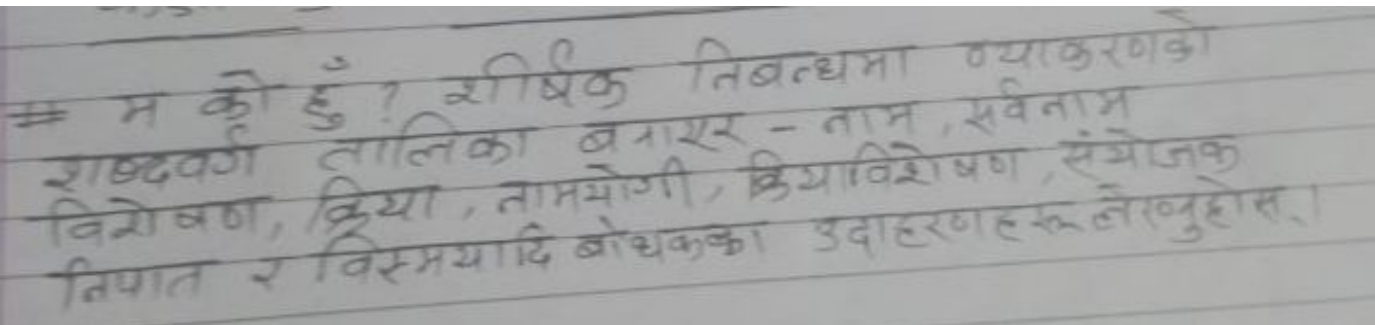 # म को हुँ ? शीर्षक निबन्धमा व्याकरणको
शब्दवर्ग तालिका बनाएर - नाम, सर्वनाम
विशेषण, क्रिया, नामयोगी, क्रियाविशेषण, संयोजक
निपात र विस्मयादि बोधकका उदाहरणहरू लेख्नुहोस् ।